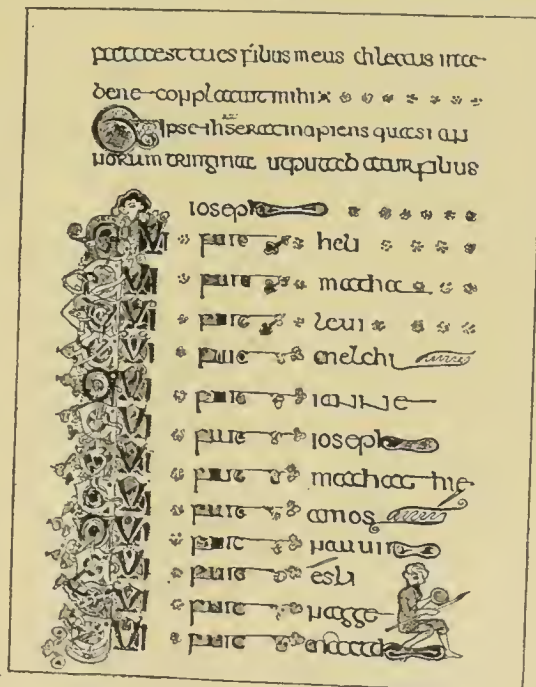 facta est tu es filius meus dilectus inte
bene conplacuit mihi
Et Ipse ihs erat incipiens quasi an
norum triginta ut putabatur filius
ioseph
QUI fuit heli
QUI fuit matha
QUI fuit leui
QUI fuit melchi
QUI fuit iannae
QUI fuit ioseph
QUI fuit mathathie
QUI fuit amos
QUI fuit nauum
QUI fuit esli
QUI fuit nagge
QUI fuit maath